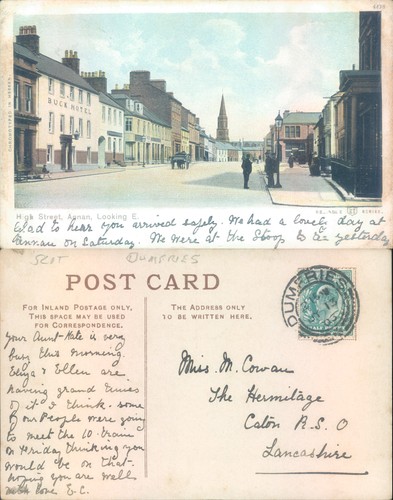 BUCK HOTEL
High Street, Annan, Looking E.
SERIES.
Glad to hear you arrived safely. We had a lovely day at
Annan on Saturday. We were at the Stoop to tea yesterday
SCOT DUMFRIES
POST CARD
FOR INLAND POSTAGE ONLY,
THIS SPACE MAY BE USED
FOR CORRESPONDENCE.
THE ADDRESS ONLY
TO BE WRITTEN HERE.
DUMFRIES
HALF PENNY
your Aunt Kate is very
busy this morning.
Eliza & Ellen are
having grand times
of it I think. some
of our people were going
to meet the 10. train
on Friday thinking you
would be on that.
hoping you are well
with love E.C.
Miss. M. Cowan
The Hermitage
Caton R.S.O
Lancashire